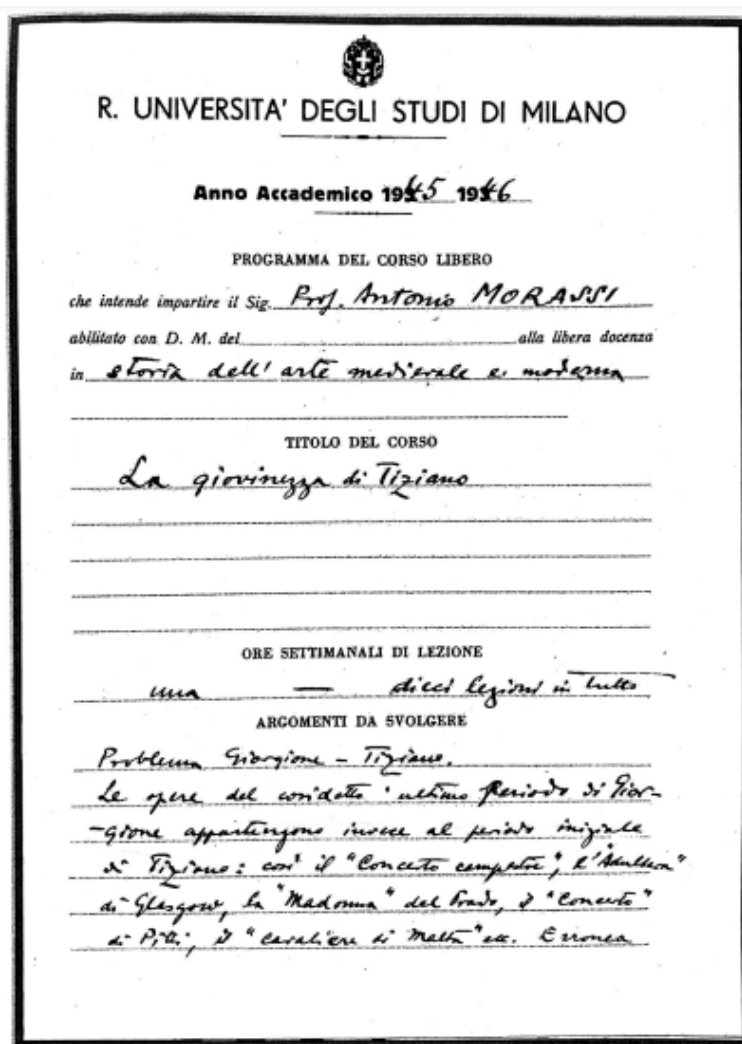 R. UNIVERSITA' DEGLI STUDI DI MILANO
Anno Accademico 1945 1946
PROGRAMMA DEL CORSO LIBERO
che intende impartire il Sig. Prof. Antonio MORASSI
abilitato con D. M. del alla libera docenza
in storia dell'arte medievale e moderna
TITOLO DEL CORSO
La giovinezza di Tiziano
ORE SETTIMANALI DI LEZIONE
una — dieci lezioni in tutto
ARGOMENTI DA SVOLGERE
Problema Giorgione - Tiziano.
Le opere del cosidetto ultimo periodo di Gior-
-gione appartengono invece al periodo iniziale
di Tiziano: così il "Concerto campestre", l'"Adultera"
di Glasgow, la "Madonna" del Prado, il "Concerto"
di Pitti, il "cavaliere di Malta" ecc. Erronea